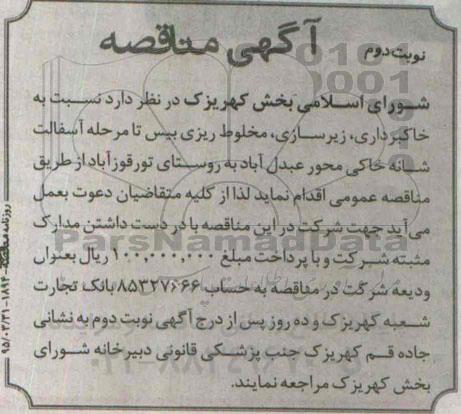 آگهی مناقصه
نوبت دوم
شورای اسلامی بخش کهریزک در نظر دارد نسبت به
خاکبرداری، زیرسازی، مخلوط ریزی بیس تا مرحله آسفالت
شانه خاکی محور عبدل آباد به روستای تورقوزآباد از طریق
مناقصه عمومی اقدام نماید لذا از کلیه متقاضیان دعوت بعمل
می‌آید جهت شرکت در این مناقصه با در دست داشتن مدارک
مثبته شرکت و با پرداخت مبلغ ۱۰۰,۰۰۰,۰۰۰ ریال بعنوان
ودیعه شرکت در مناقصه به حساب ۸۵۳۲۷۶۶ بانک تجارت
شعبه کهریزک و ده روز پس از درج آگهی نوبت دوم به نشانی
جاده قم کهریزک جنب پزشکی قانونی دبیرخانه شورای
بخش کهریزک مراجعه نمایند.
روزنامه ۱۸۹۴-۹۵/۰۳/۳۱
ParsNamadData